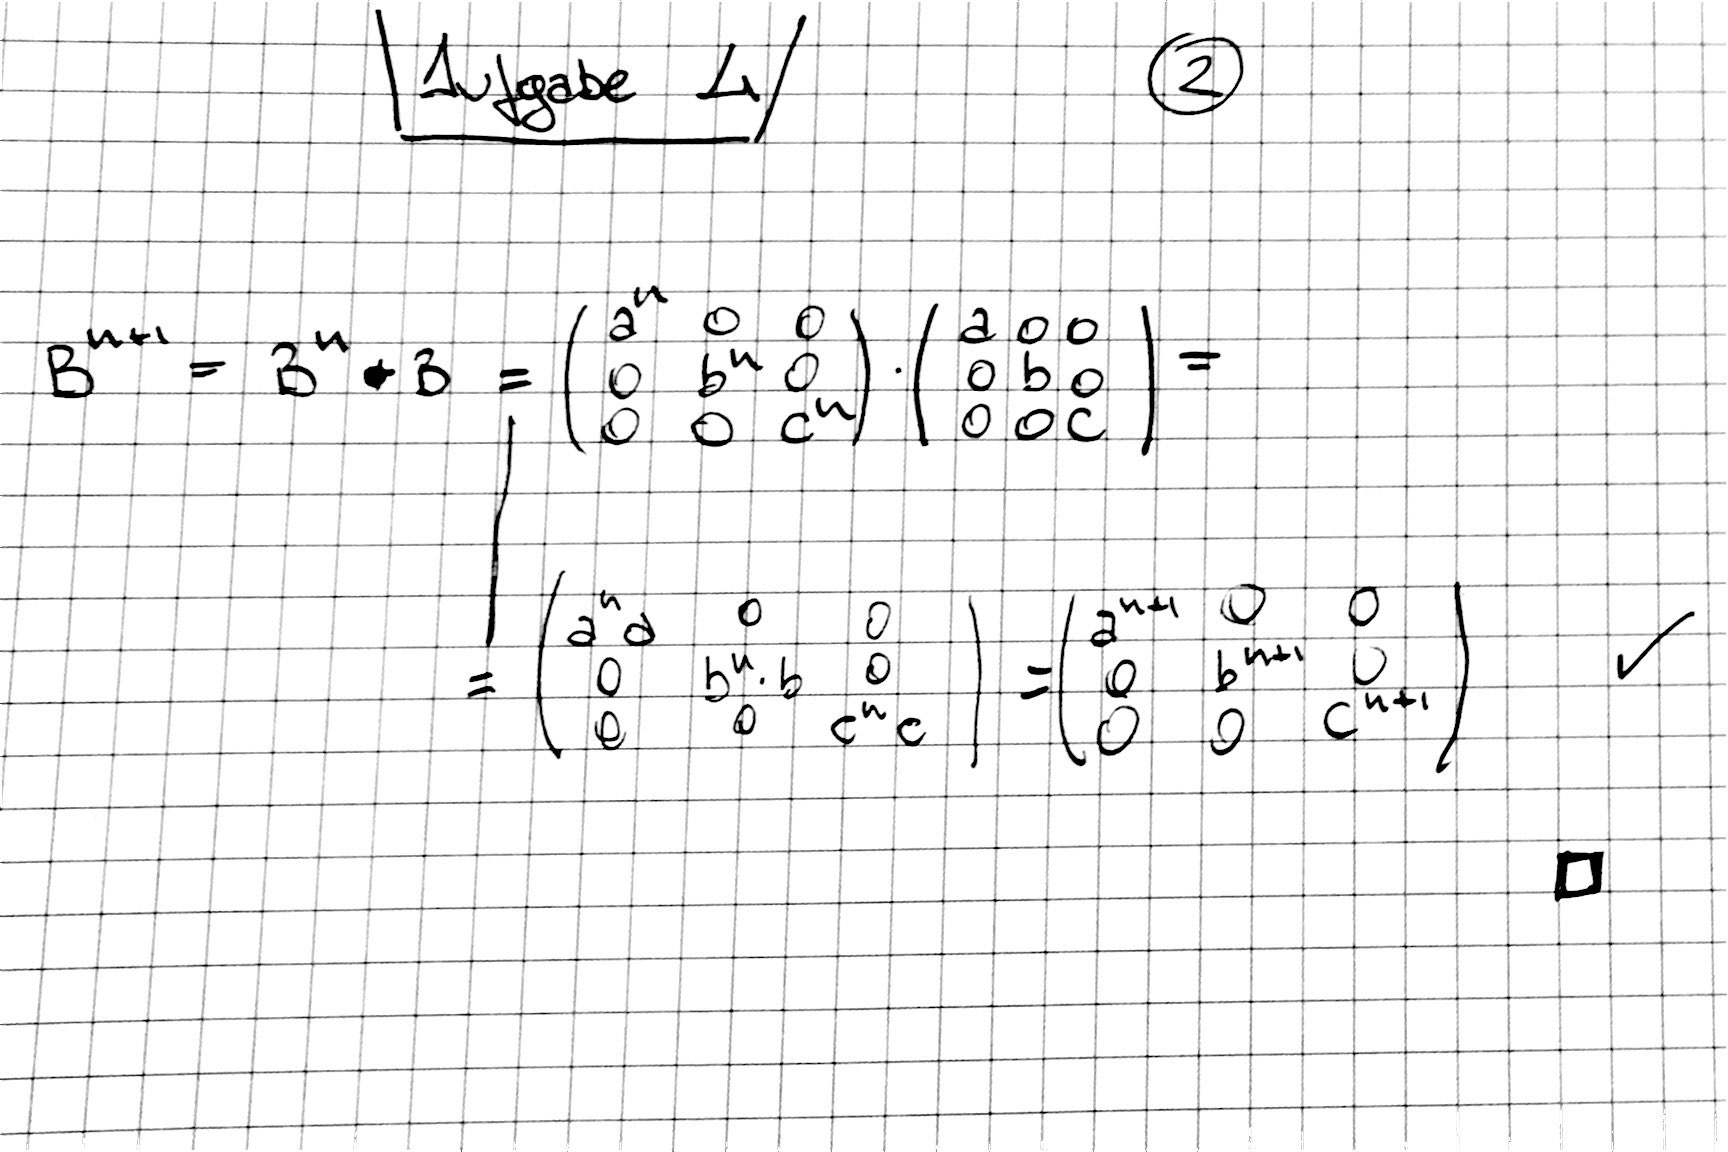 Aufgabe 4
②
B^{n+1} = B^n • B = \begin{pmatrix} a^n & 0 & 0 \\ 0 & b^n & 0 \\ 0 & 0 & c^n \end{pmatrix} · \begin{pmatrix} a & 0 & 0 \\ 0 & b & 0 \\ 0 & 0 & c \end{pmatrix} =
= \begin{pmatrix} a^n a & 0 & 0 \\ 0 & b^n · b & 0 \\ 0 & 0 & c^n c \end{pmatrix} = \begin{pmatrix} a^{n+1} & 0 & 0 \\ 0 & b^{n+1} & 0 \\ 0 & 0 & c^{n+1} \end{pmatrix} ✓
□